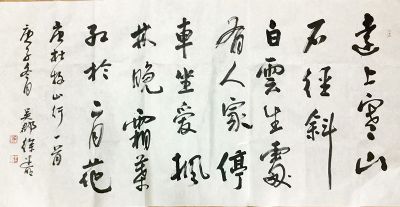 遠上寒山
石徑斜
白雲生處
有人家停
車坐愛楓
林晚霜葉
紅於二月花
唐杜牧山行一首
庚子冬月吳郡徐